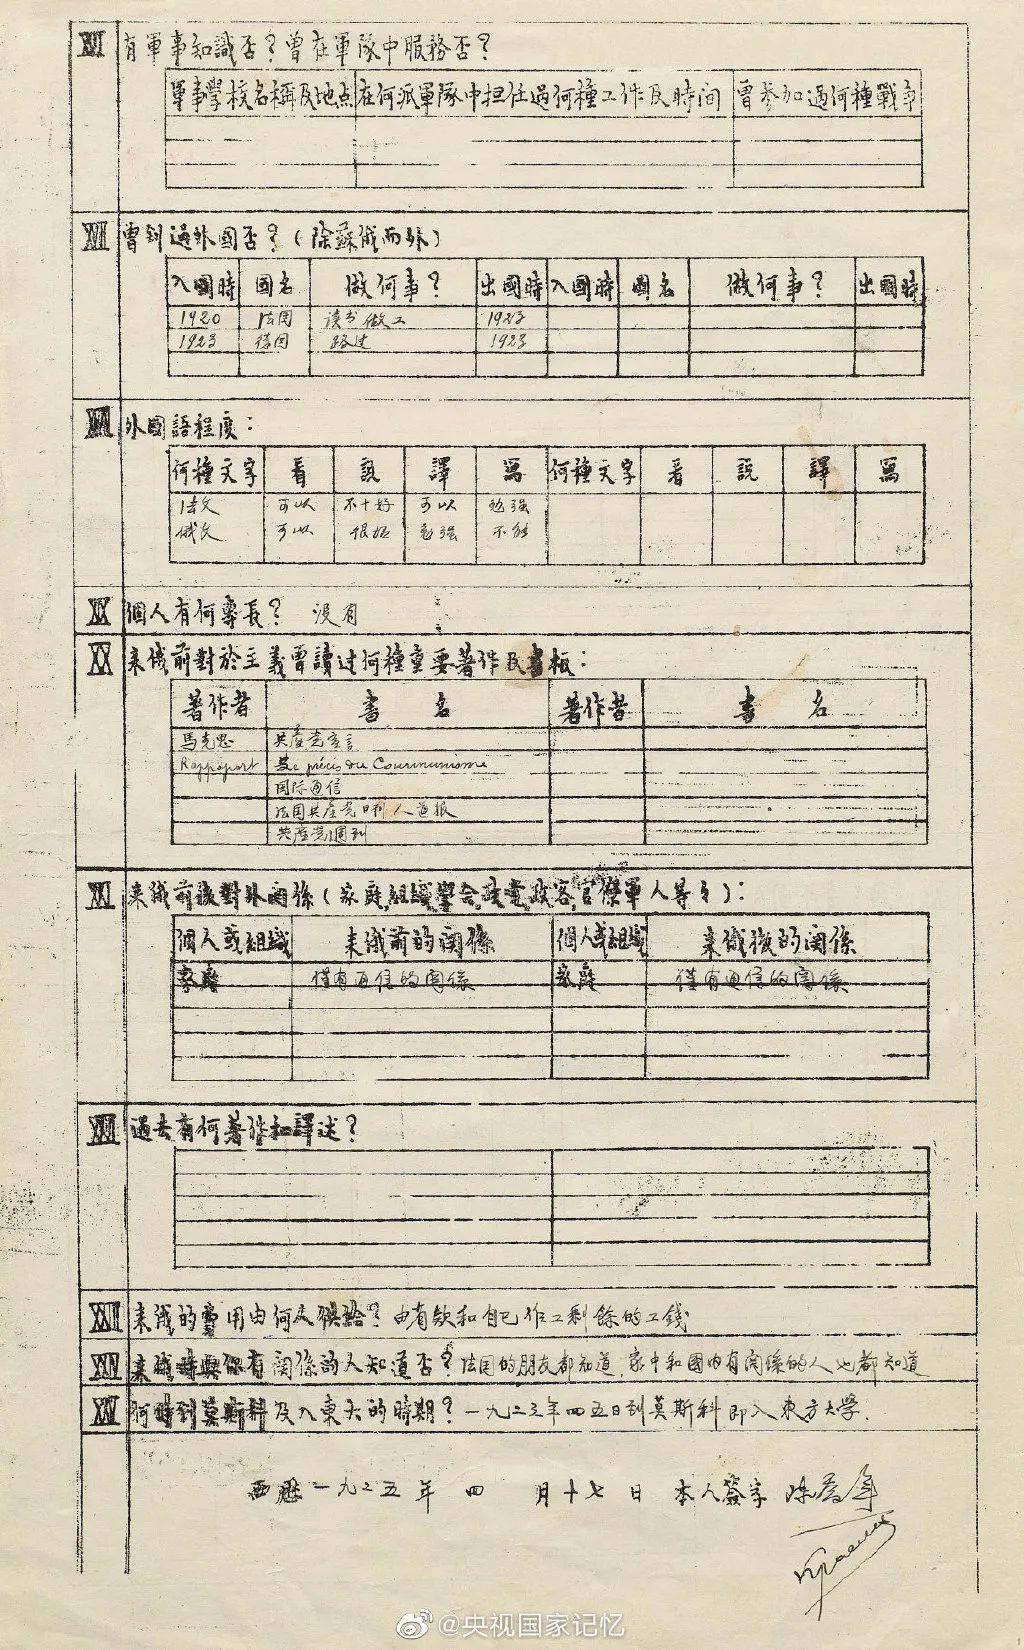 XVI 有軍事知識否？曾在軍隊中服務否？
軍事學校名稱及地点 在何派軍隊中担任過何種工作及時間 曾参加過何種戰爭
XVII 曾到過外國否？（除蘇俄而外）
入國時 國名 做何事？ 出國時 入國時 國名 做何事？ 出國時
1920 法国 读书做工 1923
1923 德国 路过 1923
XVIII 外國語程度：
何種文字 看 説 譯 寫 何種文字 看 説 譯 寫
法文 可以 不十好 可以 勉强
俄文 可以 很坏 勉强 不能
XIX 個人有何專長？ 没有
XX 来俄前對於主義曾讀过何種重要著作及書板：
著作者 書名 著作者 書名
馬克思 共產党宣言
Rappoport précis du Communisme
国际通信
法国共產党 人道报
共產党週刊
XXI 来俄前後對外関係（家庭，組織，學会，政黨，政客，官僚，軍人等々）：
個人或組織 来俄前的関係 個人或組織 来俄後的関係
家庭 僅有通信的関係 家庭 僅有通信的関係
XXII 過去有何著作和譯述？
XXIII 来俄的費用由何及供給？ 由有欵和自己作工剩餘的工錢
XXIV 来俄時與你有関係的人知道否？ 法国的朋友都知道，家中和國内有関係的人也都知道
XXV 何時到莫斯科及入東大的時期？ 一九二三年四五日到莫斯科即入東方大学．
西歷一九二五年 四 月十七日 本人簽字 陈喬年
@央视国家记忆